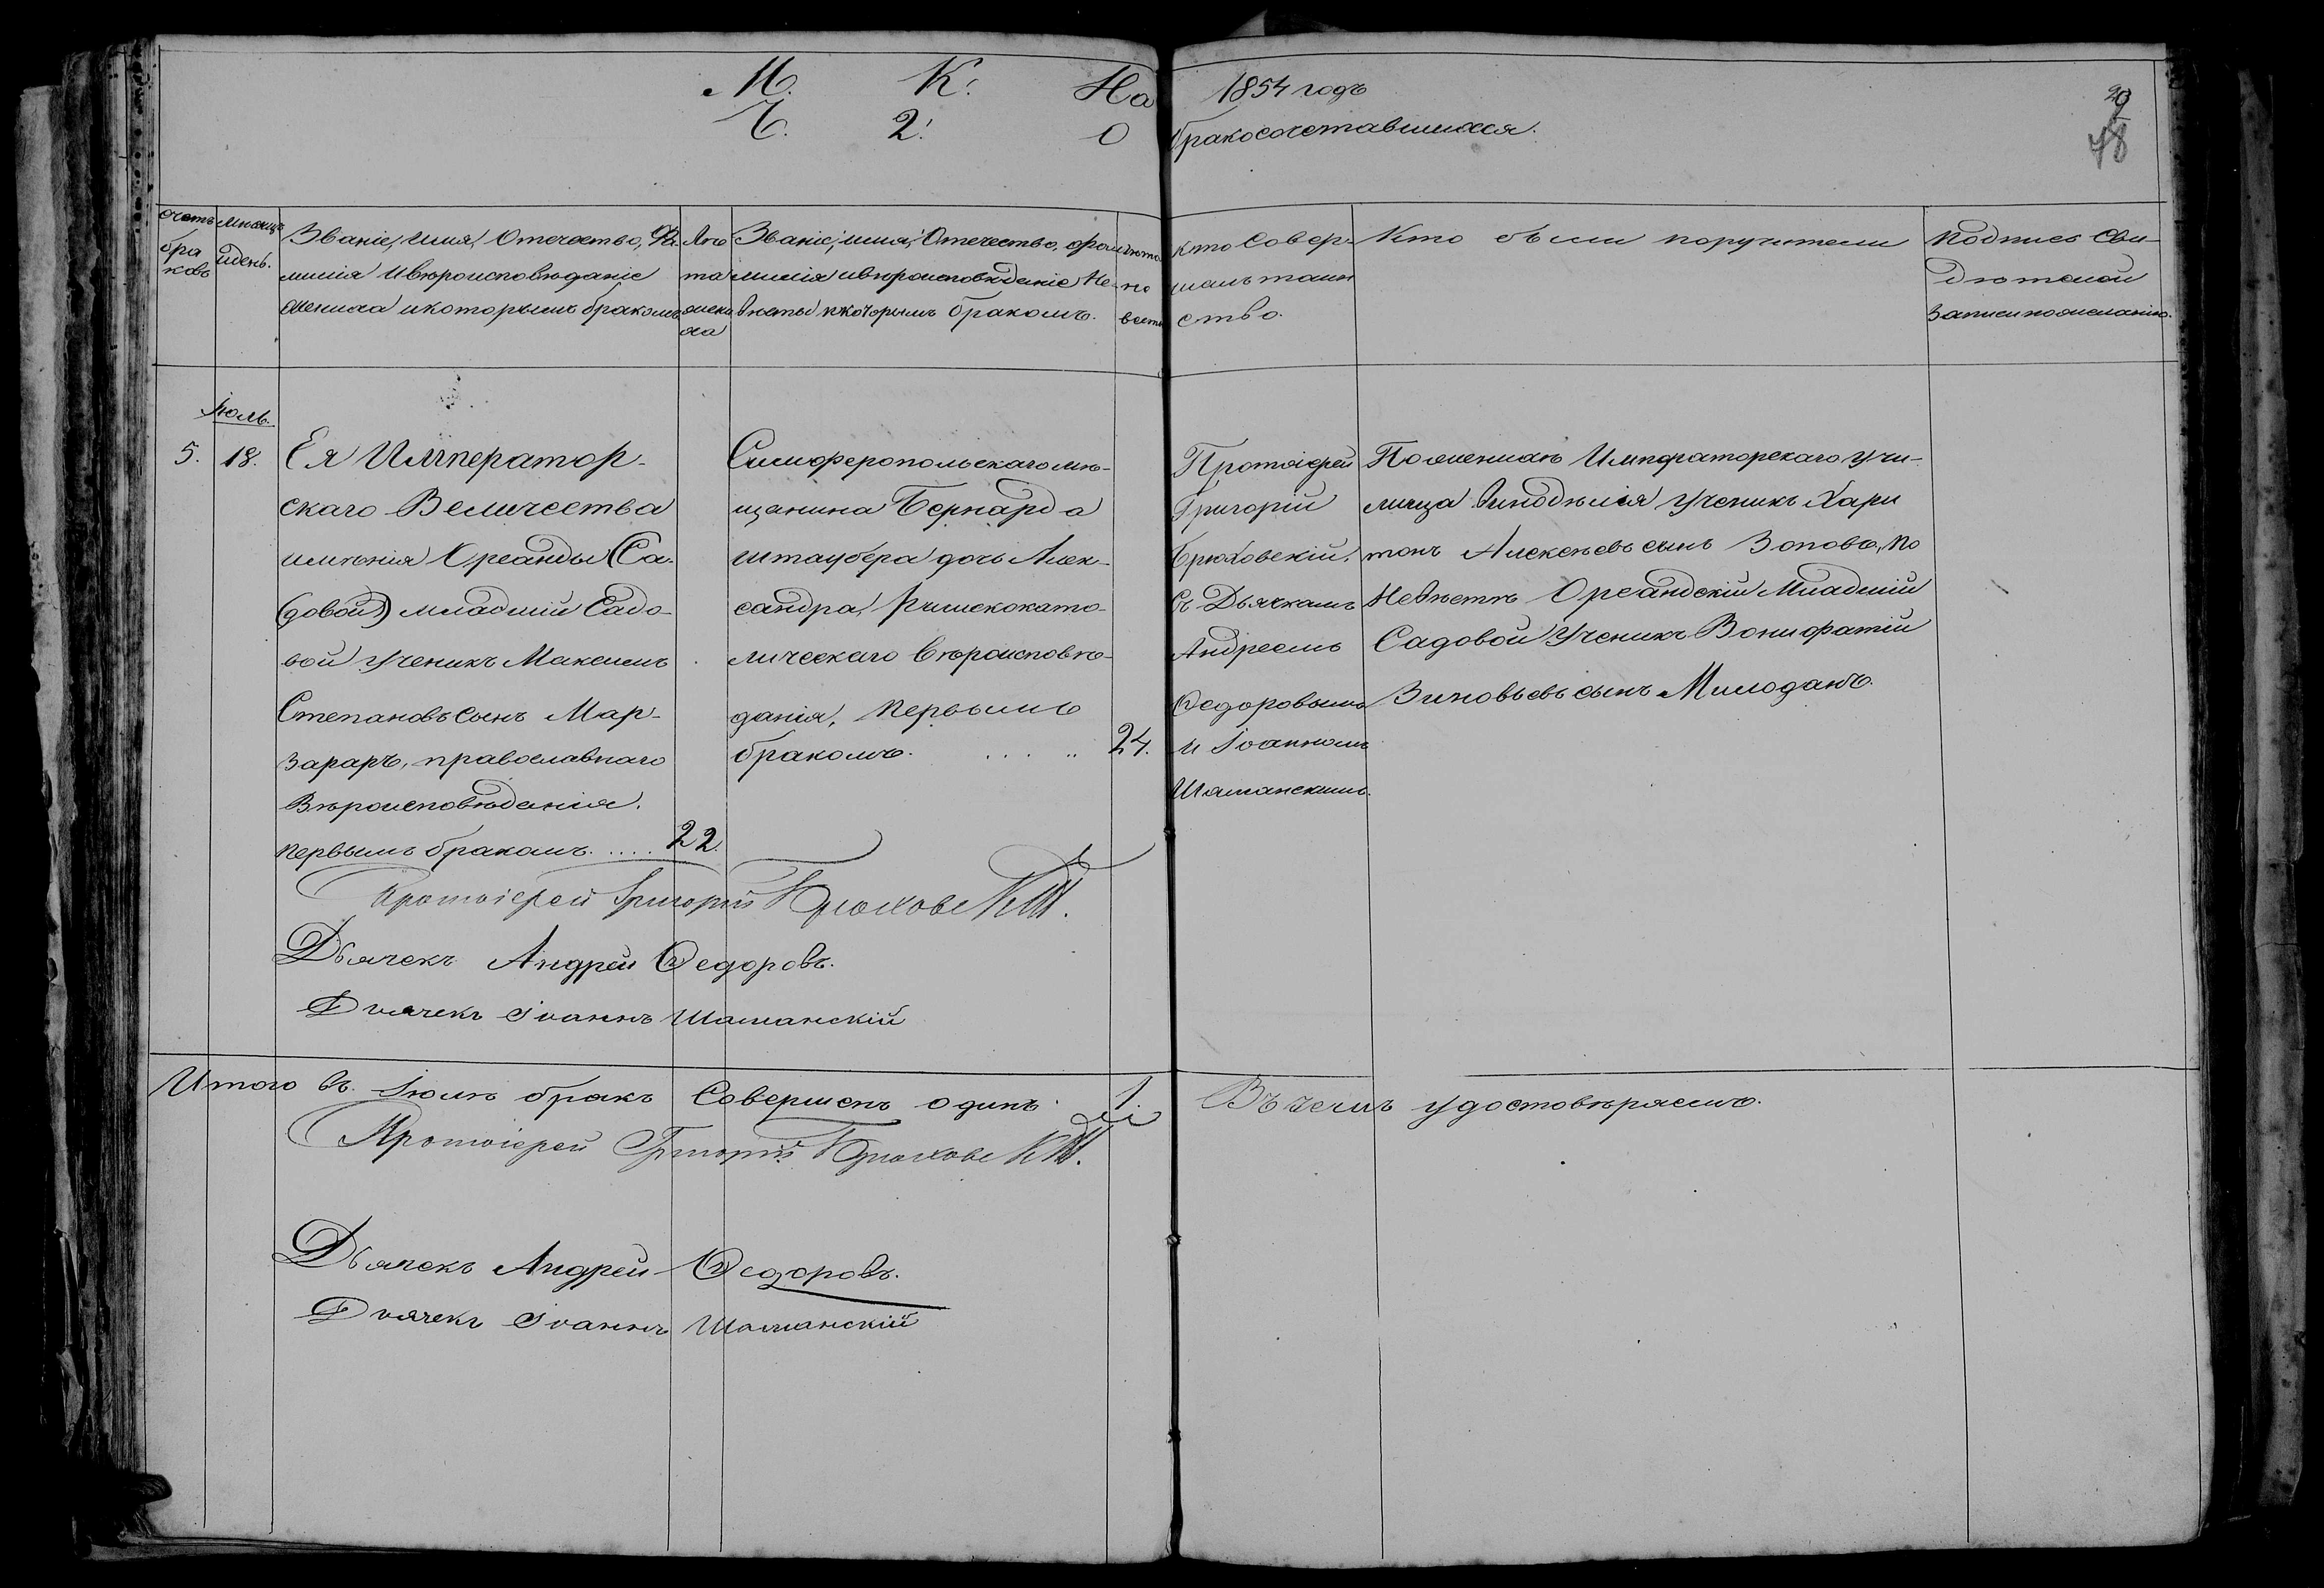 М. К. На 1854 годъ
Ч. 2. О бракосочетавшихся.
48
Счетъ браковъ
Мѣсяцъ и день.
Званіе, имя, Отечество, Фа-
милія и вѣроисповѣданіе
жениха и которымъ бракомъ
Лѣта жениха
Званіе, имя, Отечество, фами-
милія и вѣроисповѣданіе Не-
вѣсты и которымъ бракомъ.
Лѣта невѣсты
Кто Совер-
шалъ таин
ство.
Кто были поручители
Подпись Сви-
дѣтелей
Записи по желанію.
Іюль.
5. 18.
Ея Император-
скаго Величества
имѣнія Ореанды (Са-
довой) младшій Садо-
вой Ученикъ Максимъ
Степановъ Сынъ Мар-
зараръ, православнаго
Вѣроисповѣданія.
первымъ бракомъ. .... 22.
Симферопольскаго мѣ-
щанина Бернарда
Штаубера дочь Алек-
сандра, Римскокато-
лическаго вѣроисповѣ-
данія, первымъ
бракомъ. ..... 24.
Протоіерей
Григорій
Брюховскій,
съ Дьячкамъ
Андреемъ
Ѳедоровымъ
и Іоанномъ
Шаманскимъ.
По женихѣ Императорскаго Учи-
лища Винодѣлія Ученикъ Хари
тонъ Алексѣевъ сынъ Зоповъ, по
Невѣстѣ Ореандскій Младшій
Садовой Ученикъ Вонифатій
Зиновьевъ сынъ Милоданъ.
Протоіерей Григорій Брюховскій.
Дьячекъ Андрей Ѳедоровъ.
Дьячекъ Іоаннъ Шаманскій
Итого въ Іюлѣ бракъ Совершенъ одинъ. 1. Въ чемъ удостовѣряемъ.
Протоіерей Григорій Брюховскій.
Дьячекъ Андрей Ѳедоровъ.
Дьячекъ Іоаннъ Шаманскій